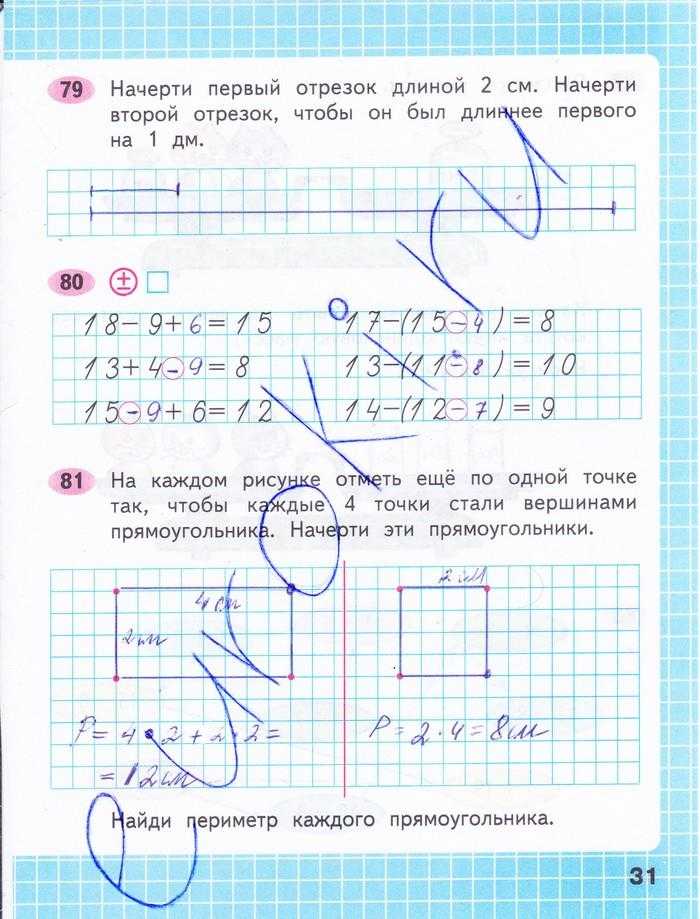 79 Начерти первый отрезок длиной 2 см. Начерти
второй отрезок, чтобы он был длиннее первого
на 1 дм.
80 ± □
18-9+6=15 17-(15-4)=8
13+4-9=8 13-(11-8)=10
15-9+6=12 14-(12-7)=9
81 На каждом рисунке отметь ещё по одной точке
так, чтобы каждые 4 точки стали вершинами
прямоугольника. Начерти эти прямоугольники.
4 см 2 см
2 см
P= 4·2+2·2= P=2·4=8см
=12см
Найди периметр каждого прямоугольника.
31